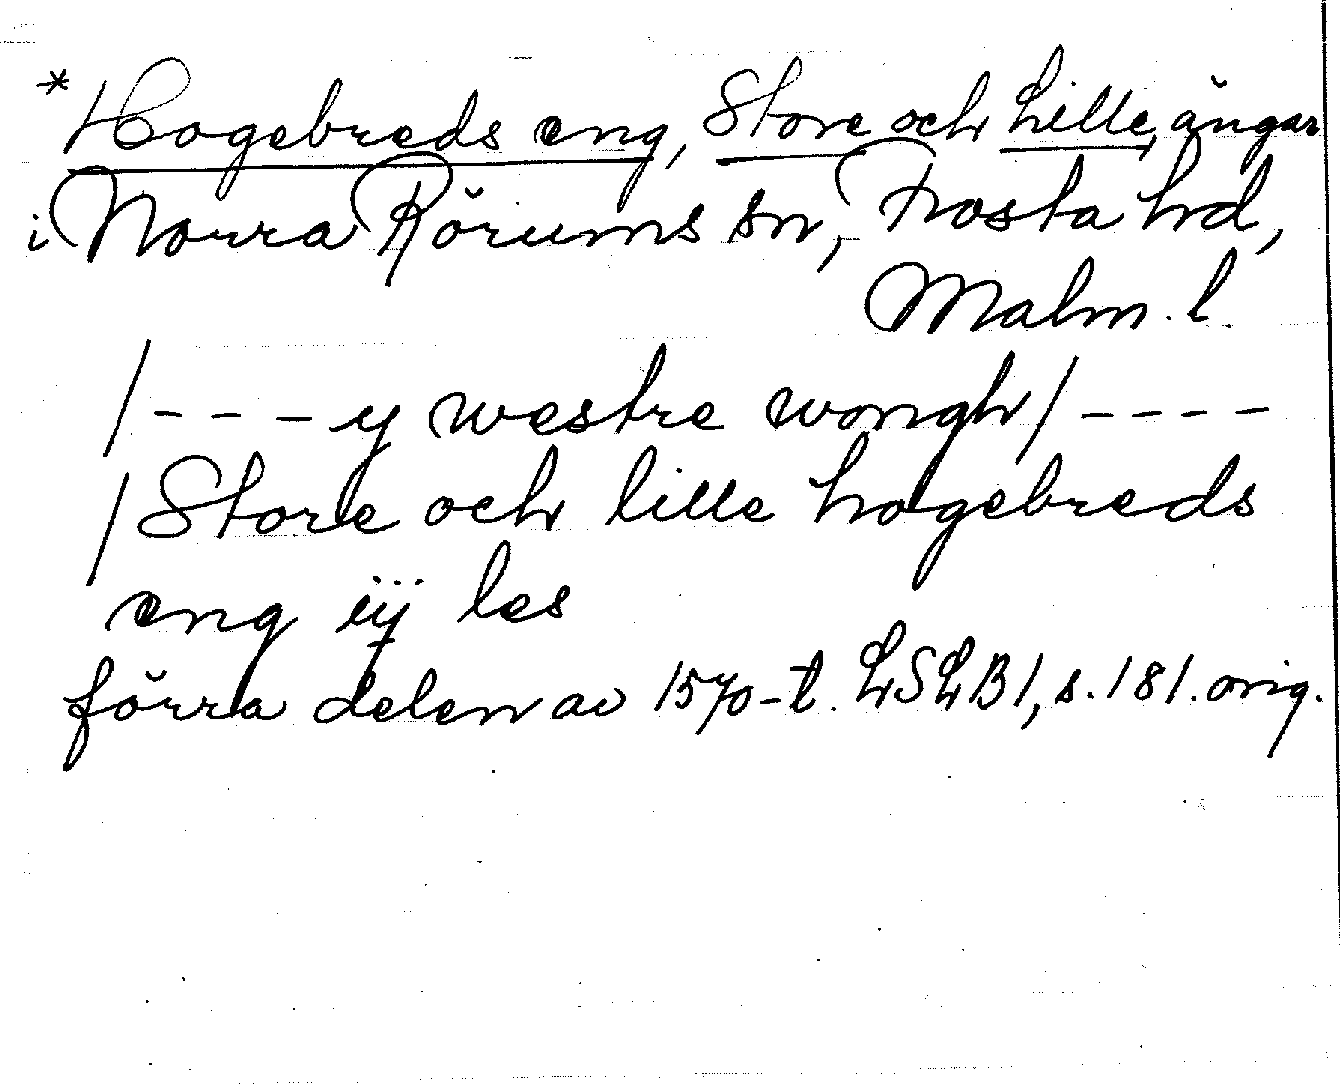 *Hogebreds eng, Store och Lille, ängar
i Norra Rörums sn, Frosta hd,
Malm. l.
/- - - y westre wongh/- - - -
/Store och lille hogebreds
eng iÿ les
förra delen av 1570-t. LSLB1, s. 181. orig.